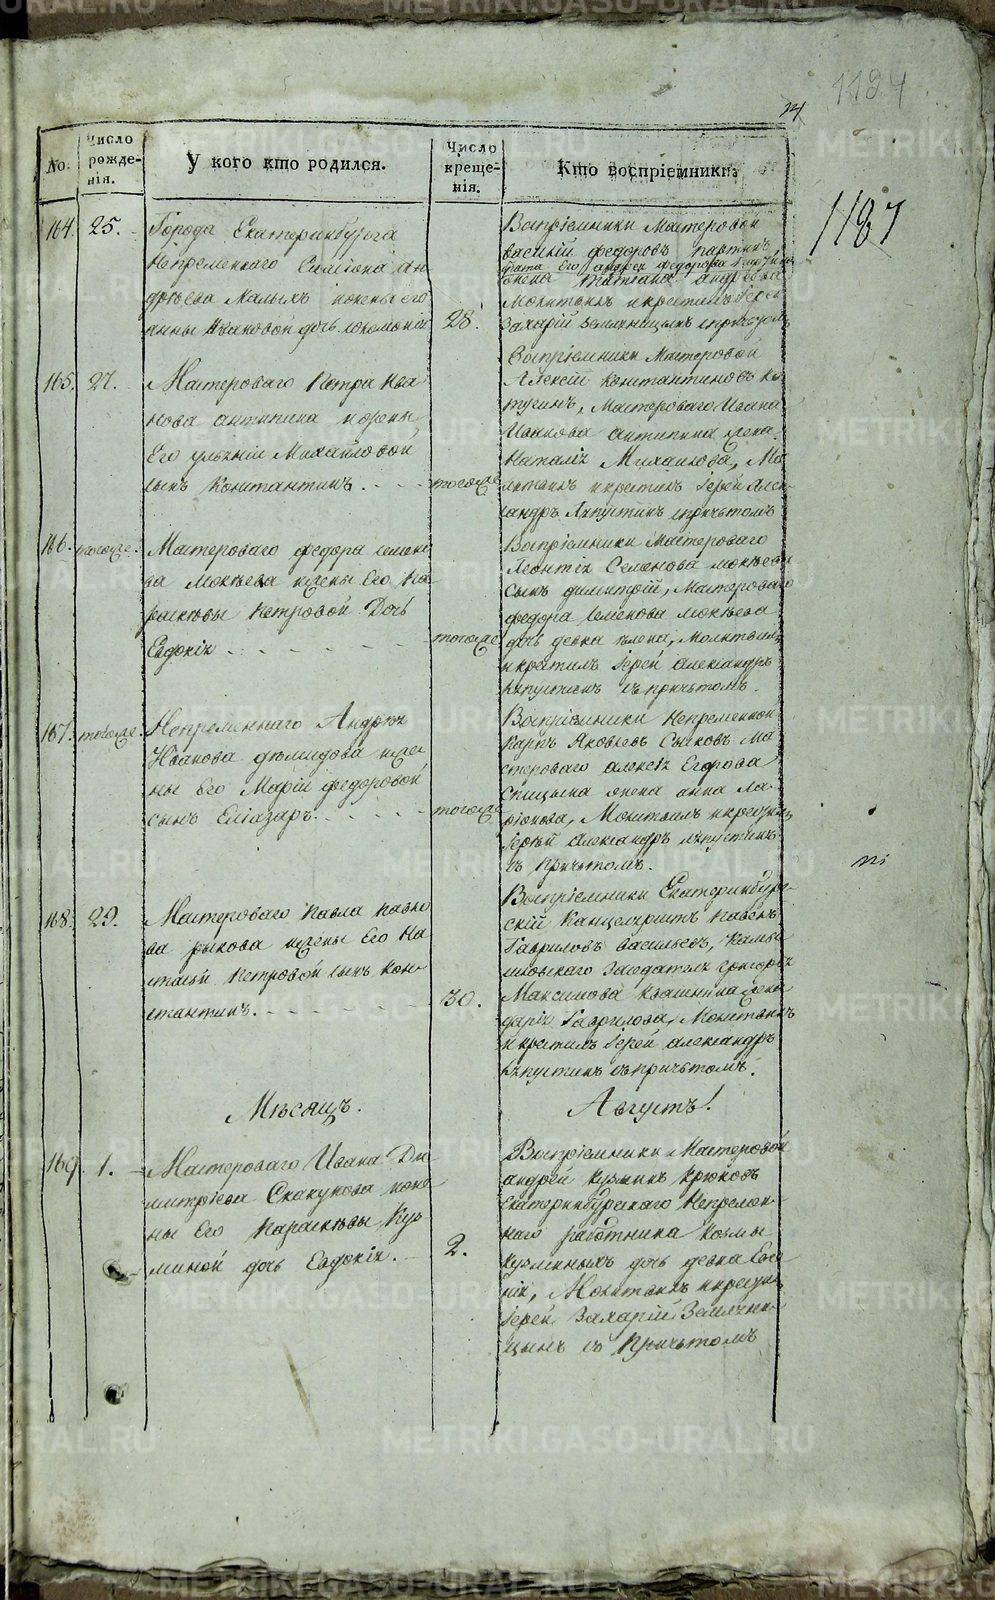 1194
1187
No.
Число рожденія.
У кого кто родился.
Число крещенія.
Кто воспріемники:
164. 25.
Города Екатеринбурга
Непременнаго Симіона Ан
дреева Малыхъ и жены его
Анны Ивановой дочь Соломонія
28.
Воспріемники Мастеровой
Василій Федоровъ
брата Его Андрея Федорова
жена Татіана Андреева
Молитвилъ и крестилъ Іерей
Захарій Земляницынъ спричтомъ
165. 27.
Мастероваго Петра Ива
нова Антипина и жены
Его Ульяніи Михайловой
сынъ Константинъ.
тогоже
Воспріемники Мастеровой
Алексій Константиновъ Ко
тугинъ, Мастероваго Ивана
Иванова Антипина жена
Наталія Михайлова, Мо
литвилъ и крестилъ Іерей Алек
сандръ Ляпустинъ спричтомъ
166. тогоже.
Мастероваго Федора Семено
ва Мокеева и жены Его Па
раскевы Петровой Дочь
Евдокія
тогоже
Воспріемники Мастероваго
Леонтія Семенова Мокеева
сынъ Димитрій, Мастероваго
Федора Семенова Мокеева
дочь девка Елена, Молитвилъ
и крестилъ Іерей Александръ
Ляпустинъ съ причтомъ.
167. тогоже.
Непременнаго Андрея
Иванова Дюмидова и же
ны Его Маріи Федоровой
сынъ Еліазаръ.
тогоже
Воспріемники Непременной
Карпъ Яковлевъ Сысковъ Ма
стероваго Алексія Егорова
Спицына жена Анна Ла
ріонова, Молитвилъ и крестилъ
Іерей Александръ Ляпустинъ
съ Причтомъ.
168. 29.
Мастероваго Павла Павло
ва Рыкова и жены Его На
таліи Петровой сынъ Кон
стантинъ.
30.
Воспріемники Екатеринбург
скій Канцеляристъ Павелъ
Гавриловъ Васильевъ, Камы
шловскаго Заседателя Григорья
Максимова Квашнина жена
Дарія Гаврилова, Молитвилъ
и крестилъ Іерей Александръ
Ляпустинъ съ причтомъ.
Месяцъ. Августъ!
169. 1.
Мастероваго Ивана Ди
митріева Скакунова и же
ны Его Параскевы Кузь
миной дочь Евдокія.
2.
Воспріемники Мастеровой
Андрей Кузминъ Крюковъ
Екатеринбургскаго Непремен
наго работника Козмы
Кузминыхъ дочь девка Евге
нія, Молитвилъ и крестилъ
Іерей Захарій Землянии
цынъ съ Причтомъ
METRIKI.GASO-URAL.RU